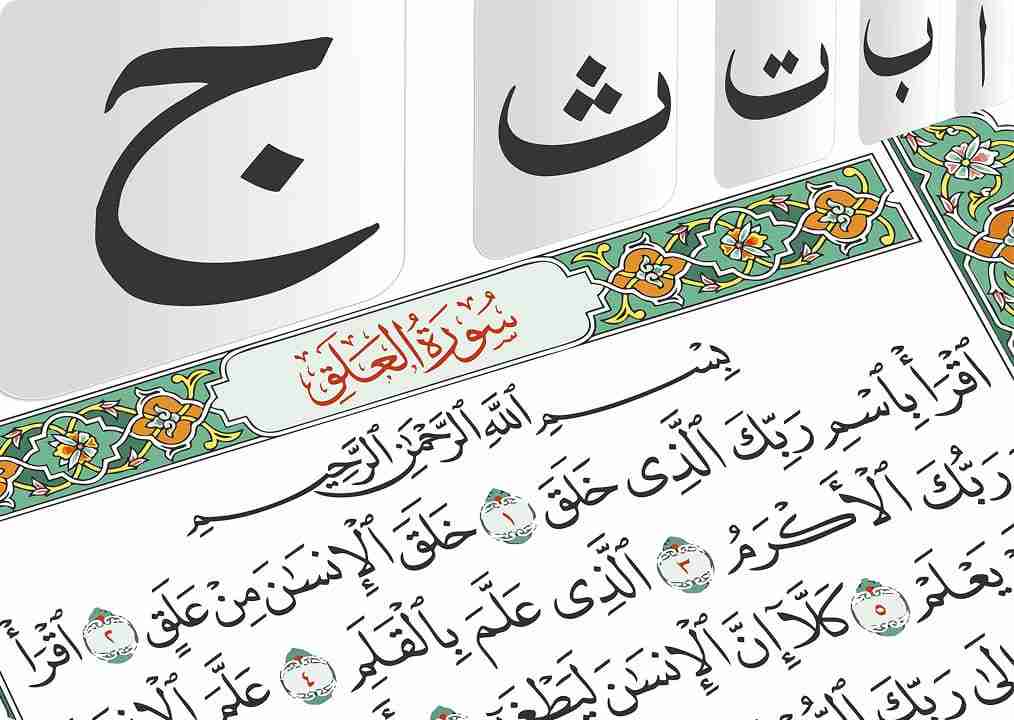 ا ب ت ث ج
سُورَةُ الْعَلَقِ
بِسْمِ ٱللَّهِ ٱلرَّحْمَٰنِ ٱلرَّحِيمِ
ٱقْرَأْ بِٱسْمِ رَبِّكَ ٱلَّذِى خَلَقَ ١ خَلَقَ ٱلْإِنسَٰنَ مِنْ عَلَقٍ ٢ ٱقْرَأْ
رَبُّكَ ٱلْأَكْرَمُ ٣ ٱلَّذِى عَلَّمَ بِٱلْقَلَمِ ٤ عَلَّمَ ٱلْإِنسَٰنَ
يَعْلَمْ ٥ كَلَّآ إِنَّ ٱلْإِنسَٰنَ لَيَطْغَىٰٓ
إِلَىٰ رَبِّكَ